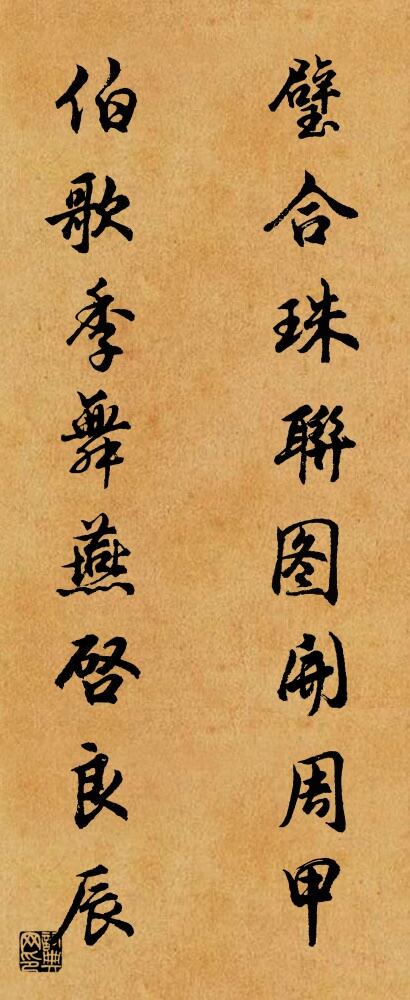 璧合珠聯图開周甲
伯歌季舞燕啓良辰